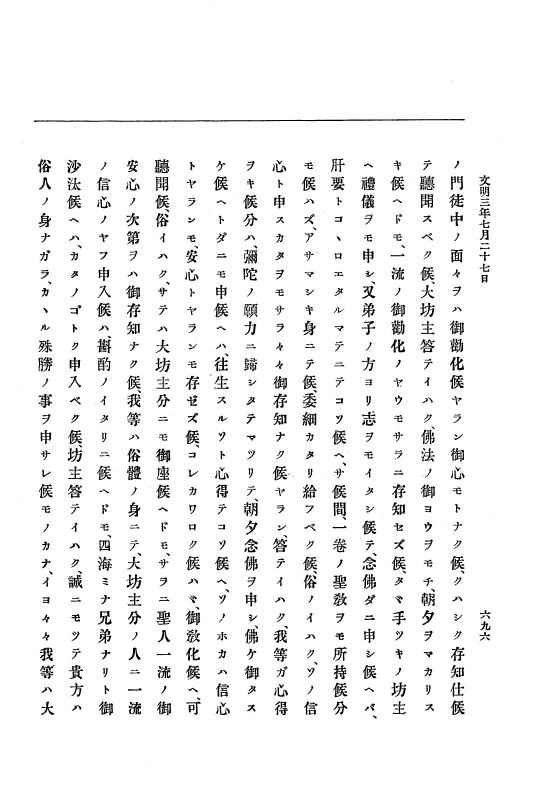 文明三年七月二十七日
六九六
ノ門徒中ノ面々ヲハ御勸化候ヤラン御心モトナク候、クハシク存知仕候
テ聽聞スベク候、大坊主答テイハク、佛法ノ御ヨウヲモチ、朝夕ヲマカリス
キ候ヘドモ、一流ノ御勸化ノヤウモサラニ存知セズ候、タヾ手ツキノ坊主
ヘ禮儀ヲモ申シ、又弟子ノ方ヨリ志ヲモイタシ候テ、念佛ダニ申シ候ヘバ、
肝要トコヽロエタルマテニテコソ候ヘ、サ候間、一卷ノ聖敎ヲモ所持候分
モ候ハズ、アサマシキ身ニテ候、委細カタリ給フベク候、俗ノイハク、ソノ信
心ト申スカタヲモサラ々々御存知ナク候ヤラン、答テイハク、我等ガ心得
ヲキ候分ハ、彌陀ノ願力ニ歸シタテマツリテ、朝夕念佛ヲ申シ、佛ケ御タス
ケ候ヘトダニモ申候ヘハ、往生スルソト心得テコソ候ヘ、ソノホカハ信心
トヤランモ、安心トヤランモ存ゼズ候、コレカワロク候ハヾ、御敎化候ヘ、可
聽聞候、俗イハク、サテハ大坊主分ニモ御座候ヘドモ、サヲニ聖人一流ノ御
安心ノ次第ヲハ御存知ナク候、我等ハ俗體ノ身ニテ、大坊主分ノ人ニ一流
ノ信心ノヤフ申入候ハ、斟酌ノイタリニ候ヘドモ、四海ミナ兄弟ナリト御
沙汰候ヘハ、カタノゴトク申入ベク候、坊主答テイハク、誠ニモツテ貴方ハ
俗人ノ身ナガラ、カヽル殊勝ノ事ヲ申サレ候モノカナ、イヨ々々我等ハ大